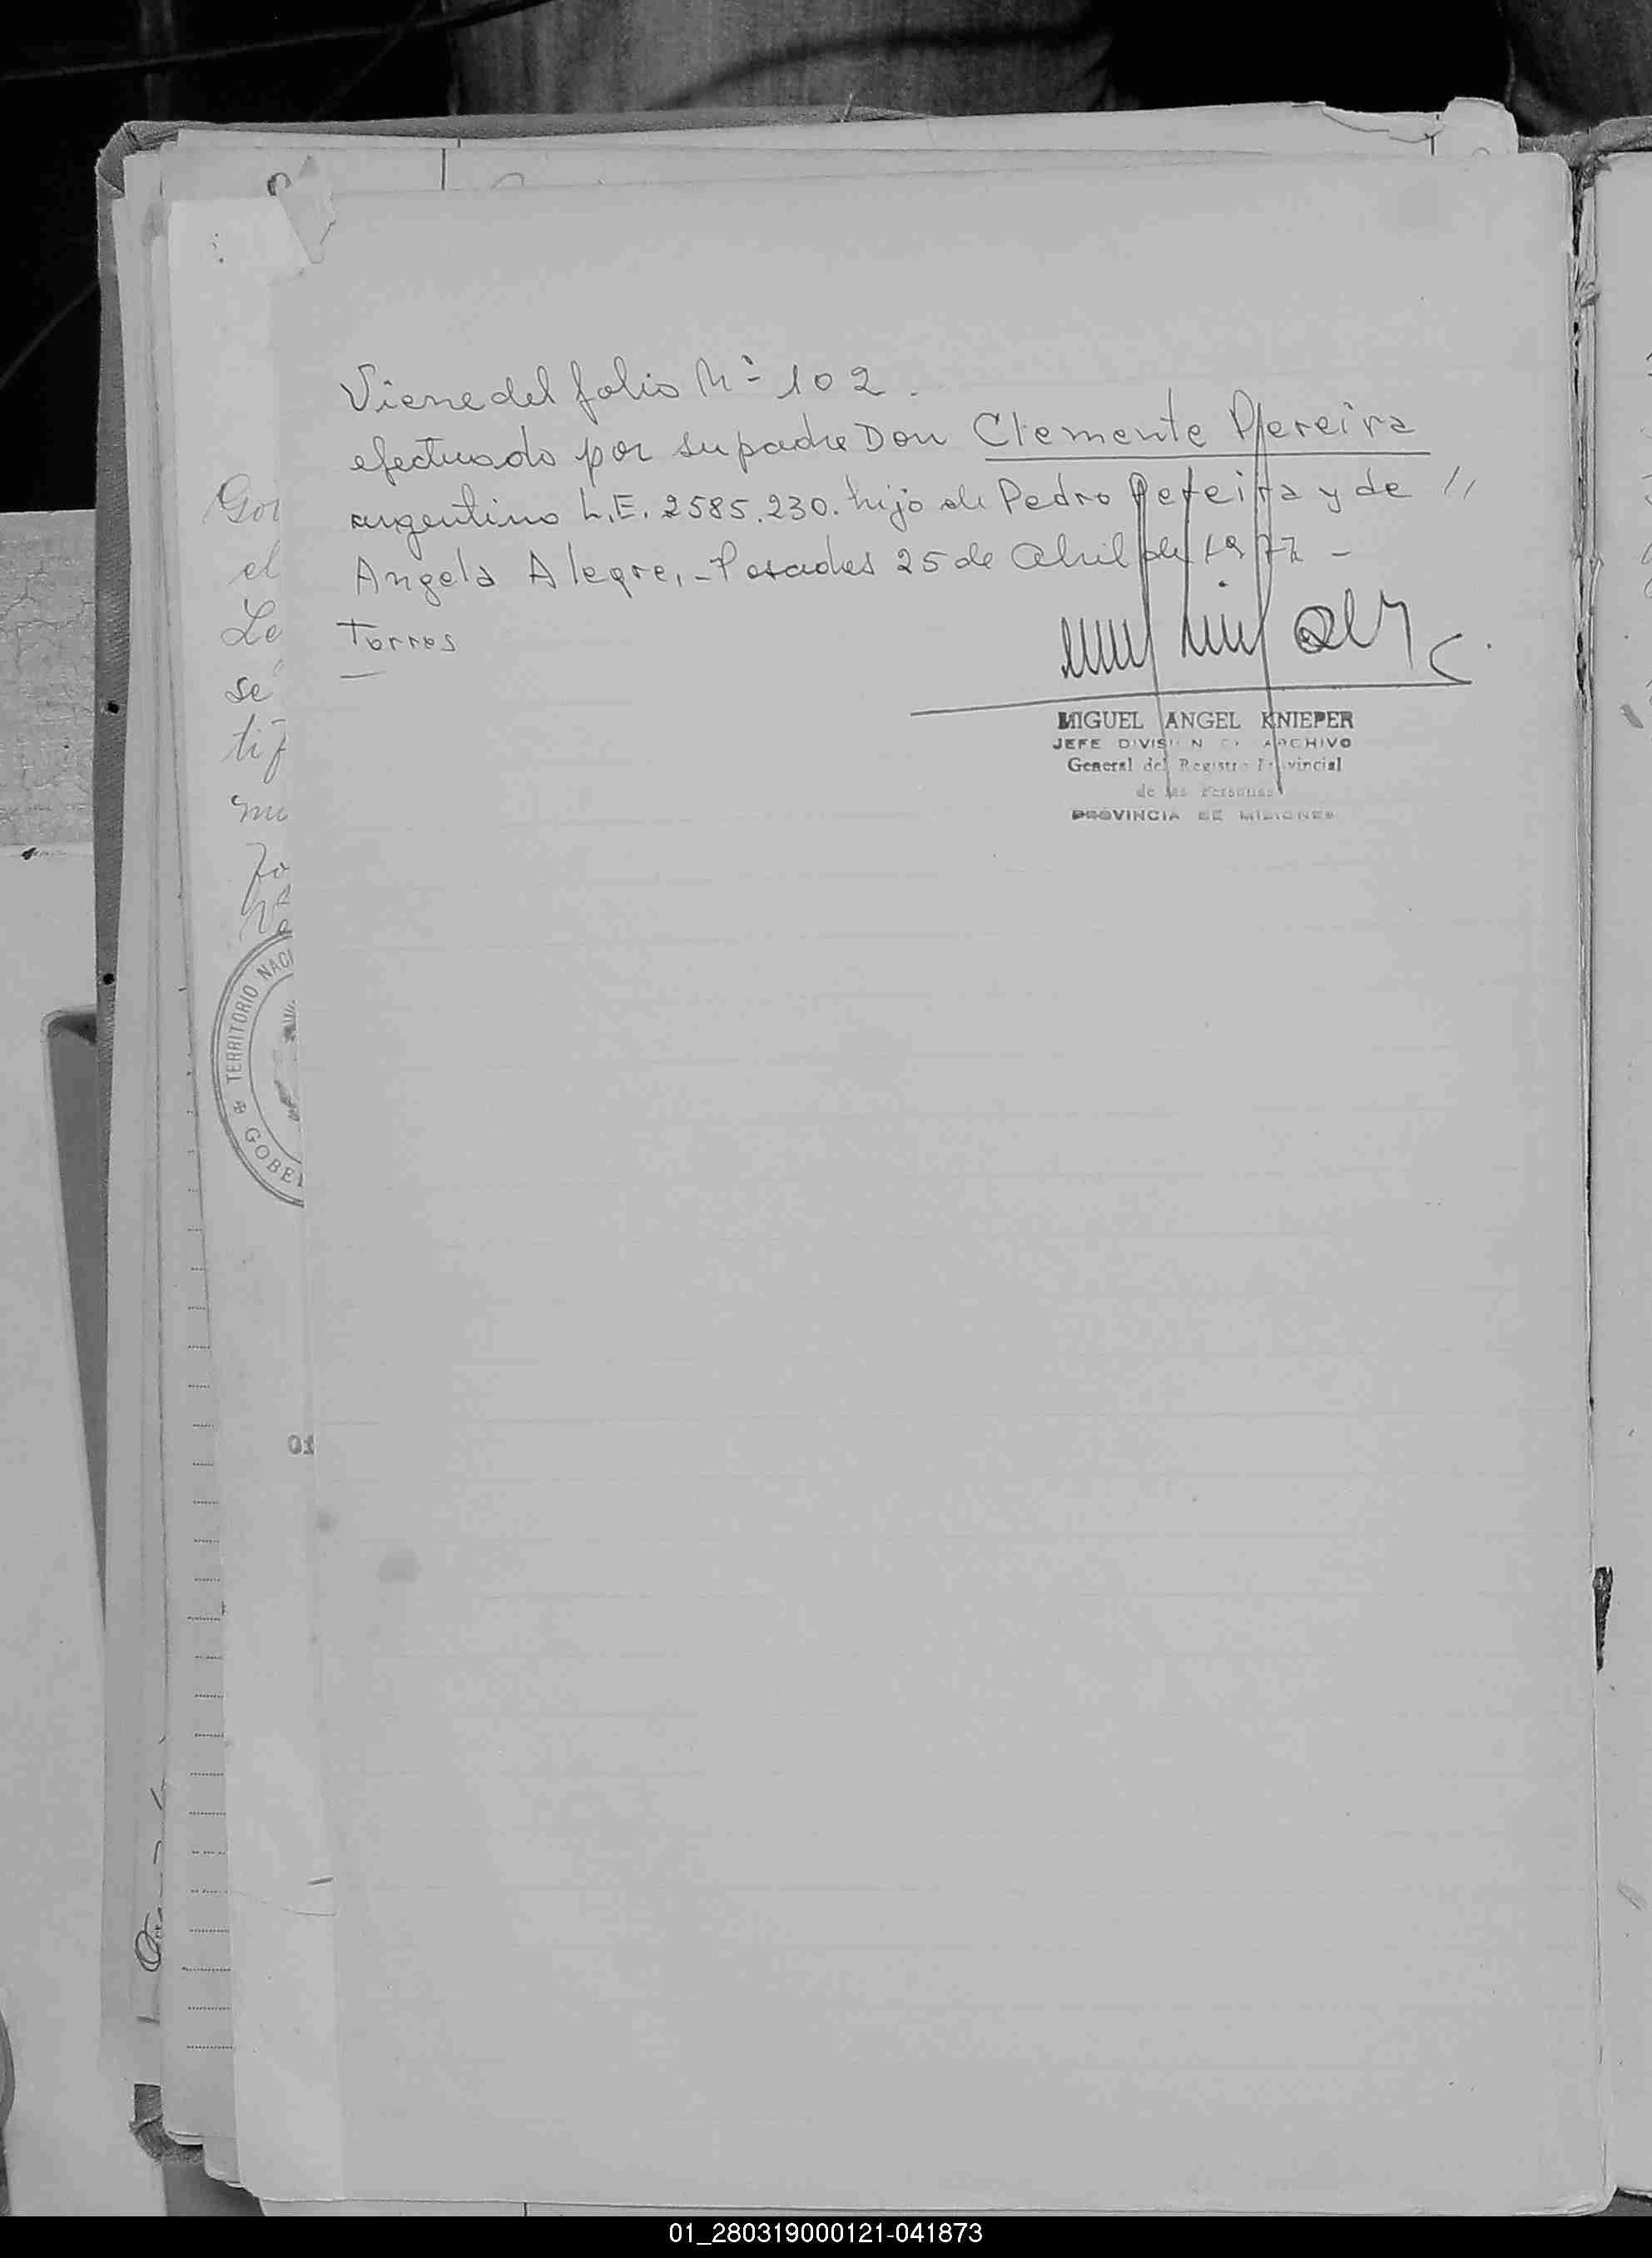 Viene del folio Nº 102.
efectuado por su padre Don Clemente Pereira
argentino L.E. 2585.230. hijo de Pedro Pereira y de //
Angela Alegre,- Posadas 25 de Abril de 1977 -
Torres
MIGUEL ANGEL KNIEPER
JEFE DIVISION ARCHIVO
General del Registro Provincial
de las Personas
PROVINCIA DE MISIONES
Gor
el
Le
se
tif
mi
TERRITORIO NACI
GOBE
01
01_280319000121-041873